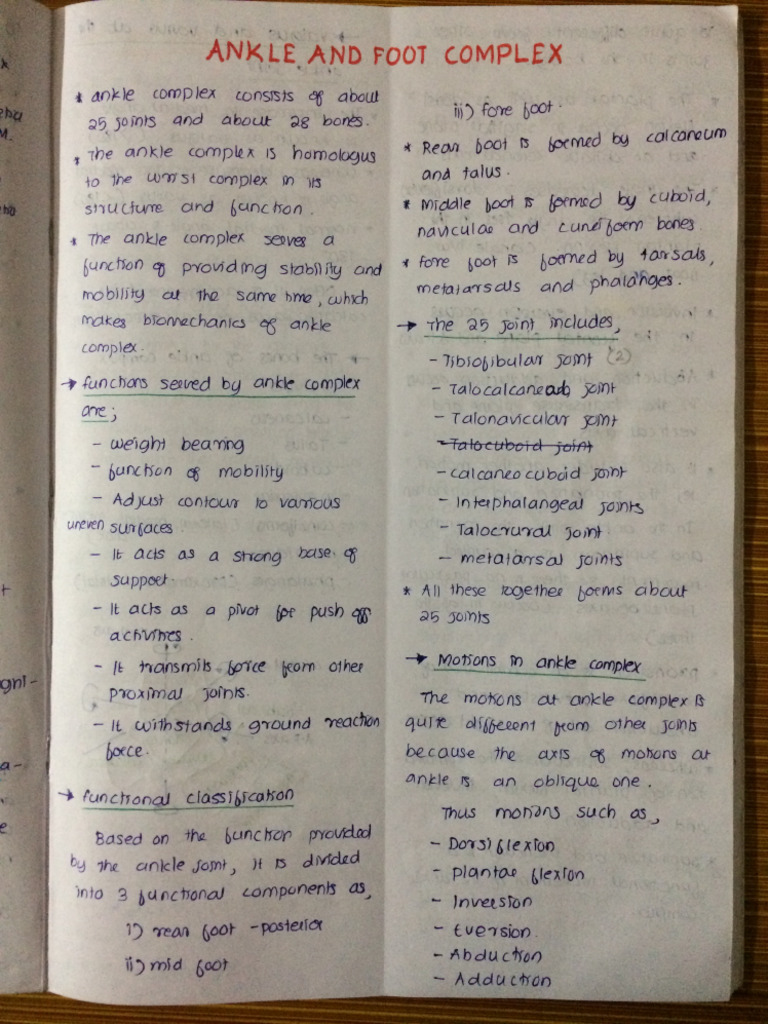 ANKLE AND FOOT COMPLEX
* ankle complex consists of about
25 joints and about 28 bones.
* The ankle complex is homologus
to the wrist complex in its
structure and function.
* The ankle complex serves a
function of providing stability and
mobility at the same time, which
makes biomechanics of ankle
complex.
→ functions served by ankle complex
are;
- weight bearing
- function of mobility
- Adjust contour to various
uneven surfaces.
- It acts as a strong base of
support
- It acts as a pivot for push off
activities.
- It transmits force from other
proximal joints.
- It withstands ground reaction
force.
→ functional classification
Based on the function provided
by the ankle joint, it is divided
into 3 functional components as,
i) rear foot - posterior
ii) mid foot
iii) fore foot.
* Rear foot is formed by calcaneum
and talus.
* Middle foot is formed by cuboid,
navicular and cuneiform bones.
* Fore foot is formed by tarsals,
metatarsals and phalanges.
→ The 25 joint includes,
- Tibiofibular joint (2)
- Talocalcaneal joint
- Talonavicular joint
- Talocuboid joint
- calcaneo cuboid joint
- Interphalangeal joints
- Talocrural joint
- metatarsal joints
* All these together forms about
25 joints
→ Motions in ankle complex
The motions at ankle complex is
quite different from other joints
because the axis of motions at
ankle is an oblique one.
Thus motions such as,
- Dorsi flexion
- plantar flexion
- Inversion
- Eversion.
- Abduction
- Adduction